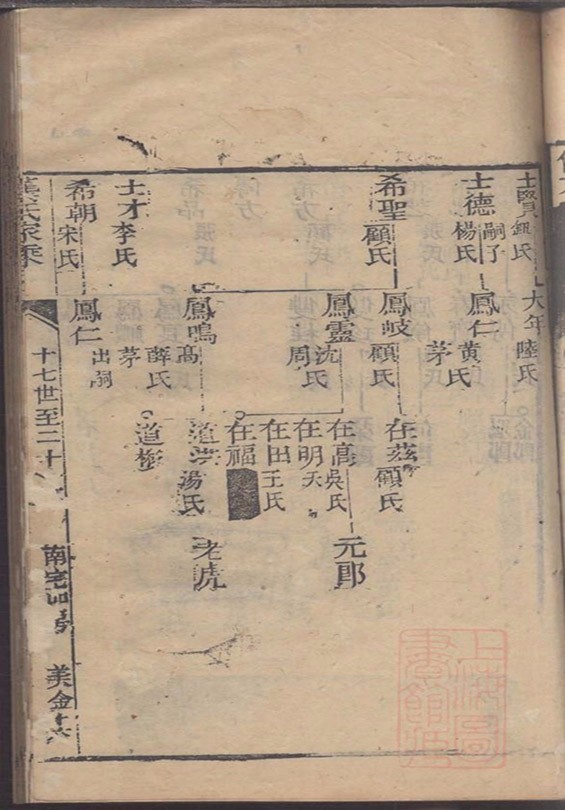 士賢 鈕氏
大年 陸氏
士德 嗣子 楊氏
鳳仁 黃氏 茅
希聖 顧氏
鳳岐 顧氏
在茲 顧氏
鳳靈 沈氏 周
在高 吳氏
元郎
在明 夭
在田 王氏
在福
鳳鳴 高 薛氏 茅
道洪 湯氏
老虎
道梅
士才 李氏
希朝 宋氏
鳳仁 出嗣
氏家乘
十七世至二十
南宅四房
美金
上海圖書館藏